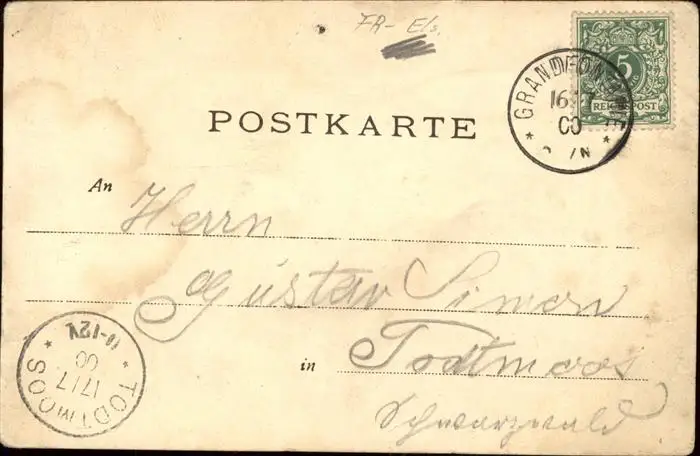 FR- Els.
5
REICHSPOST
GRANDFONTAINE
16 7
00
N
POSTKARTE
An Herrn
Gustav Simon
in Todtmoos
Schwarzwald
TODTMOOS
17/7
00
11-12V